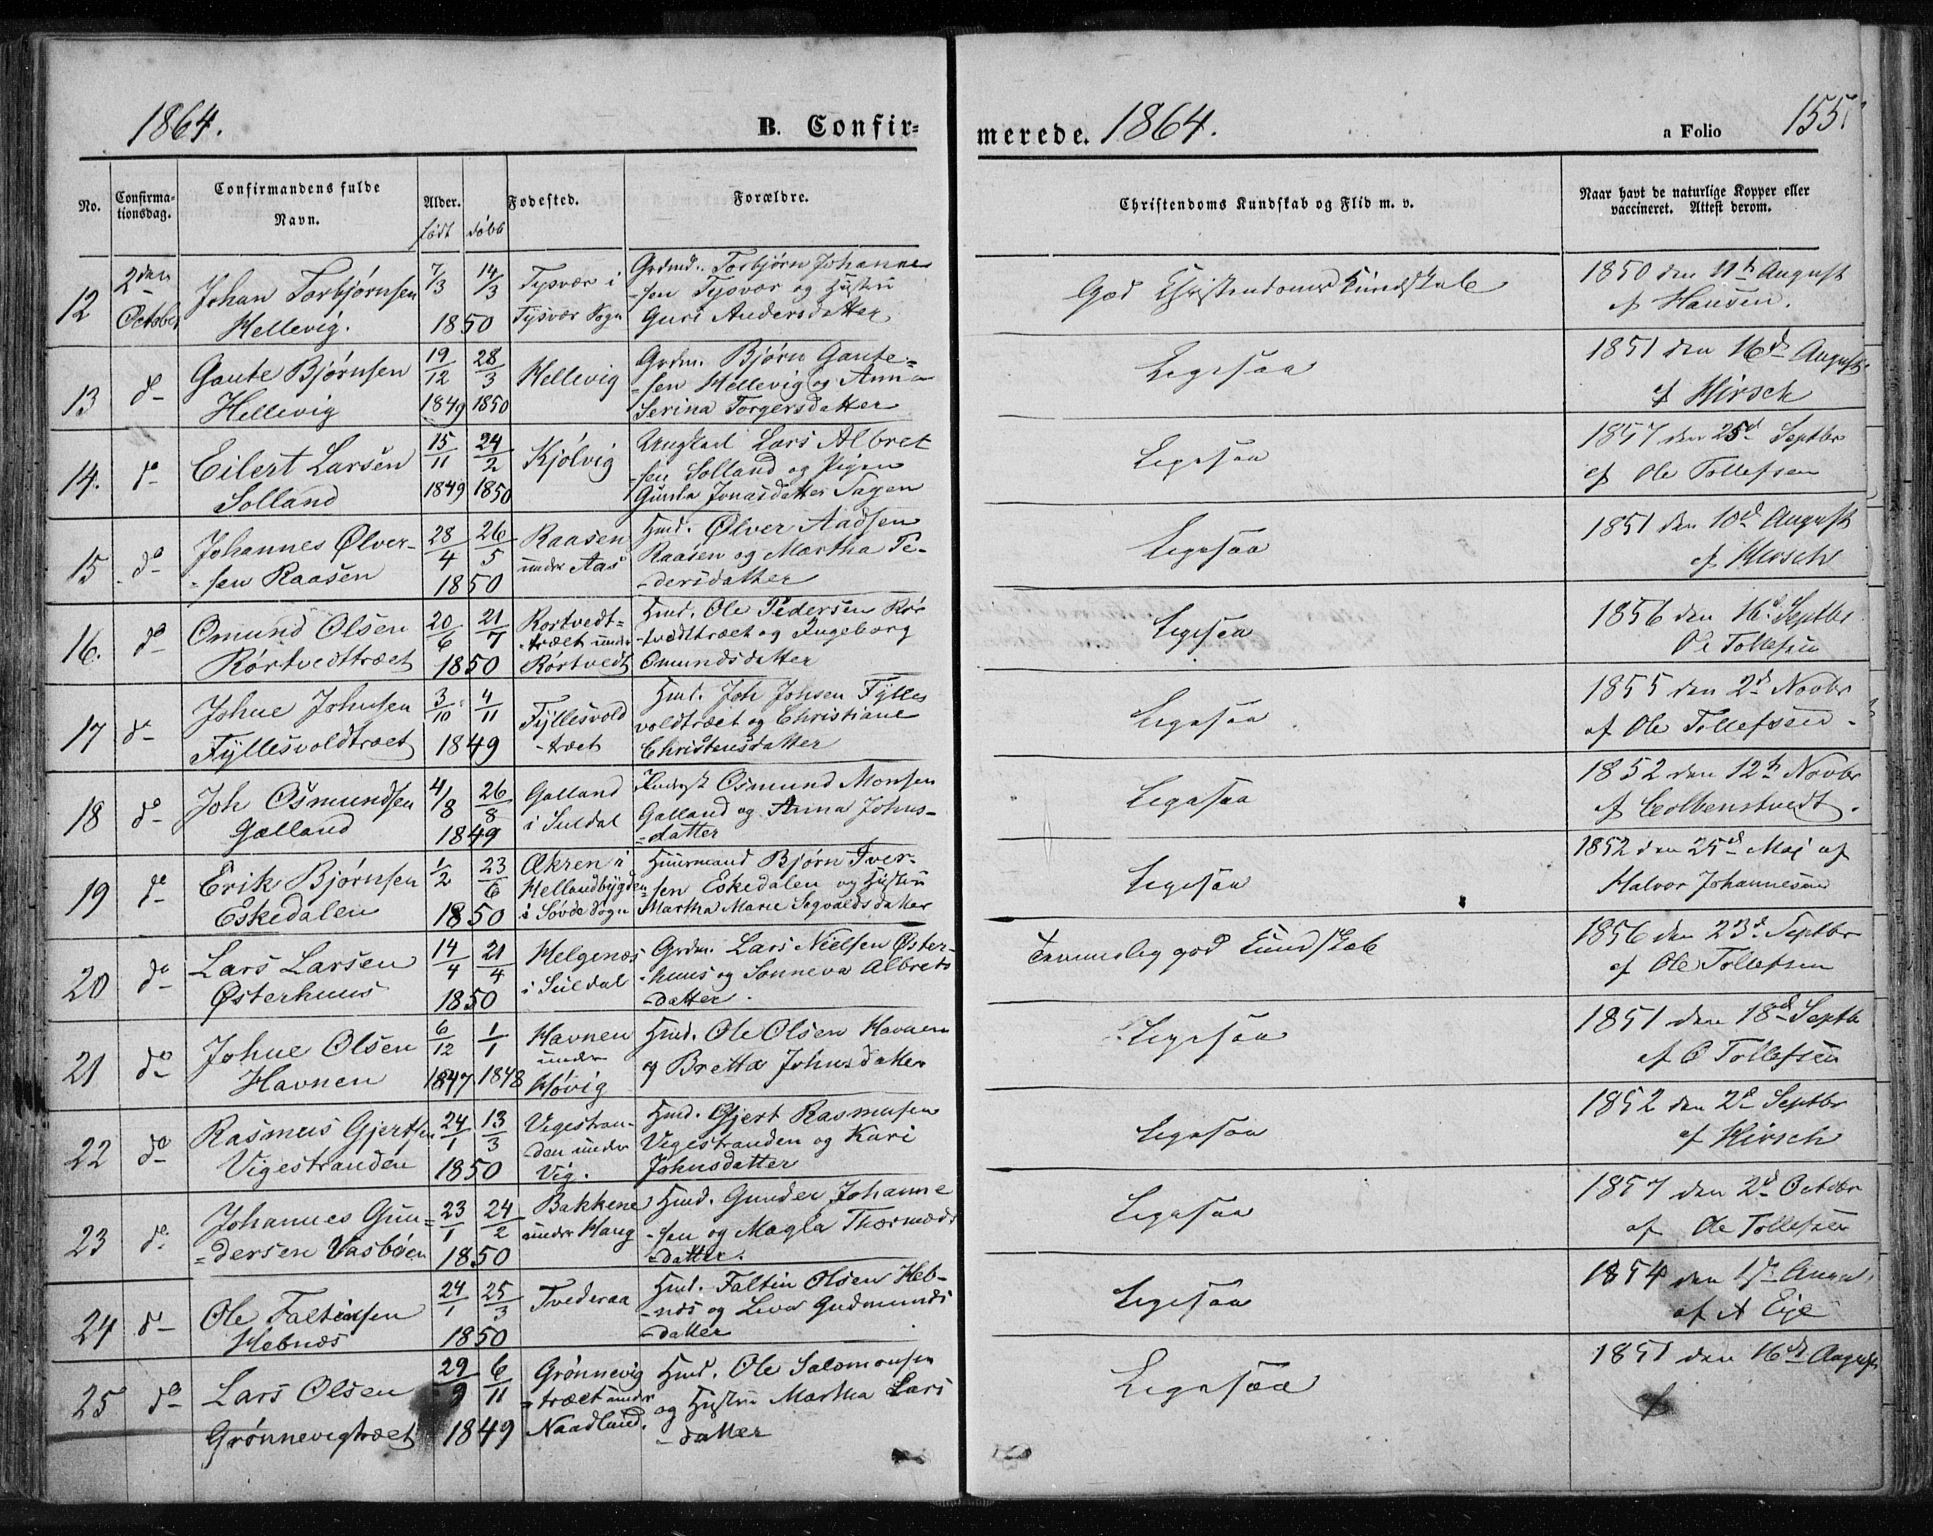 1864. B. Confir=
merede. 1864. a Folio 155.
No. Confirma-
tionsdag. Confirmandens fulde
Navn. Alder. Fødested. Forældre. Christendoms Kundskab og Flid m. v. Naar havt de naturlige Kopper eller
vaccineret. Attest derom.
født døbt
12 2den
October Johan Torbjørnsen
Hellevig. 7/3 14/3
1850 Tysvær i
Tysvær Sogn Grdmd. Torbjørn Johanne
-sen Tysvær og Hustru
Guri Andersdatter God Christendoms Kundskab 1850 den 11te August
af Hansen.
13 do Gaute Bjørnsen
Hellevig 19/12 28/3
1849 1850 Hellevig Grdm. Bjørn Gaute-
-sen Hellevig og Anna
Serina Torgersdatter Ligesaa 1851 den 16d August
af Hirsch
14. do Eilert Larsen
Solland 15/11 24/2
1849 1850 Kjølvig Ungkarl Lars Albret
-sen Solland og Pigen
Gunla Jonasdatter Ligesaa 1857 den 25d Septbr
af Ole Tollefsen
15 do Johannes Ølver-
-sen Raasen 28/4 26/5
1850 Raasen
under Aas Hmd. Ølver Aadsen
Raasen og Martha Pe-
-dersdatter Ligesaa 1851 den 10d August
af Hirsch
16. do Omund Olsen
Rørtvedttræet 20/6 21/7
1850 Rortvedt=
-træet under
Rørtvedt Hmd. Ole Pedersen Rør
-tvedttræet og Ingeborg
Omundsdatter Ligesaa 1856 den 16d Septbr.
Ole Tollefsen
17 do Johne Johnsen
Fyllesvoldtræet 3/10 4/11
1849 Fyllesvold
-træet Hmd. Joh Johsen Fylles
voldtræet og Christiane
Christensdatter Ligesaa 1855 den 2d Novbr
af Ole Tollefsen.
18 do Joh Osmundsen
Galland 4/8 26/8
1849 Galland
i Suldal Osmund Monsen
Galland og Anna Johns-
-datter Ligesaa 1852 den 12te Novbr
af Colbenstvedt.
19 do Erik Bjørnsen
Eskedalen 1/2 23/6
1850 Ækren i
Hellandbygden
i Søvde Sogn Huusmand Bjørn Iver-
-sen Eskedalen og Hustru
Martha Marie Segvaldsdatter Ligesaa 1852 den 25d Maj af
Halvor Johannesen
20 do Lars Larsen
Østerhuus 14/4 21/4
1850 Helgenæs
i Suldal Grdm. Lars Nielsen Øster-
-huus og Sonneva Albreds
-datter. Temmelig god Kundskab 1856 den 23d Septbr
af Ole Tollefsen
21 do Johne Olsen
Havnen 6/12 1/1
1847 1848 Havnen
under
Høvig Hmd. Ole Olsen Havnen
og Bretta Johnsdatter Ligesaa 1851 den 18d Septb
af O Tollefsen
22 do Rasmus Gjertsen
Vigestranden 24/1 13/3
1850 Vigestran-
den under
Vig. Hmd. Gjert Rasmusen
Vigestranden og Kari
Johnsdatter Ligesaa 1852 den 2d Septbr
af Hirsch
23 do Johannes Gun=
-dersen Vasbøen 23/1 24/2
1850 Bakkene
under Haug Hmd. Gunder Johanne
-sen og Magla Thormods
-datter. Ligesaa 1857 den 2d Octobr
af Ole Tollefsen
24 do Ole Faltinsen
Hebnæs 24/1 25/3
1850 Tvederaa Hmd. Faltin Olsen Heb-
-næs og Liva Gudmunds
-datter Ligesaa 1854 den
af A Eije
25 do Lars Olsen
Grønnevigtræet 29/9 6/11
1849 Grønnevig
-træet under
Naadland. Hmd. Ole Salomonsen
og Hustru Martha Lars
-datter Ligesaa 1851 den 16de August
af